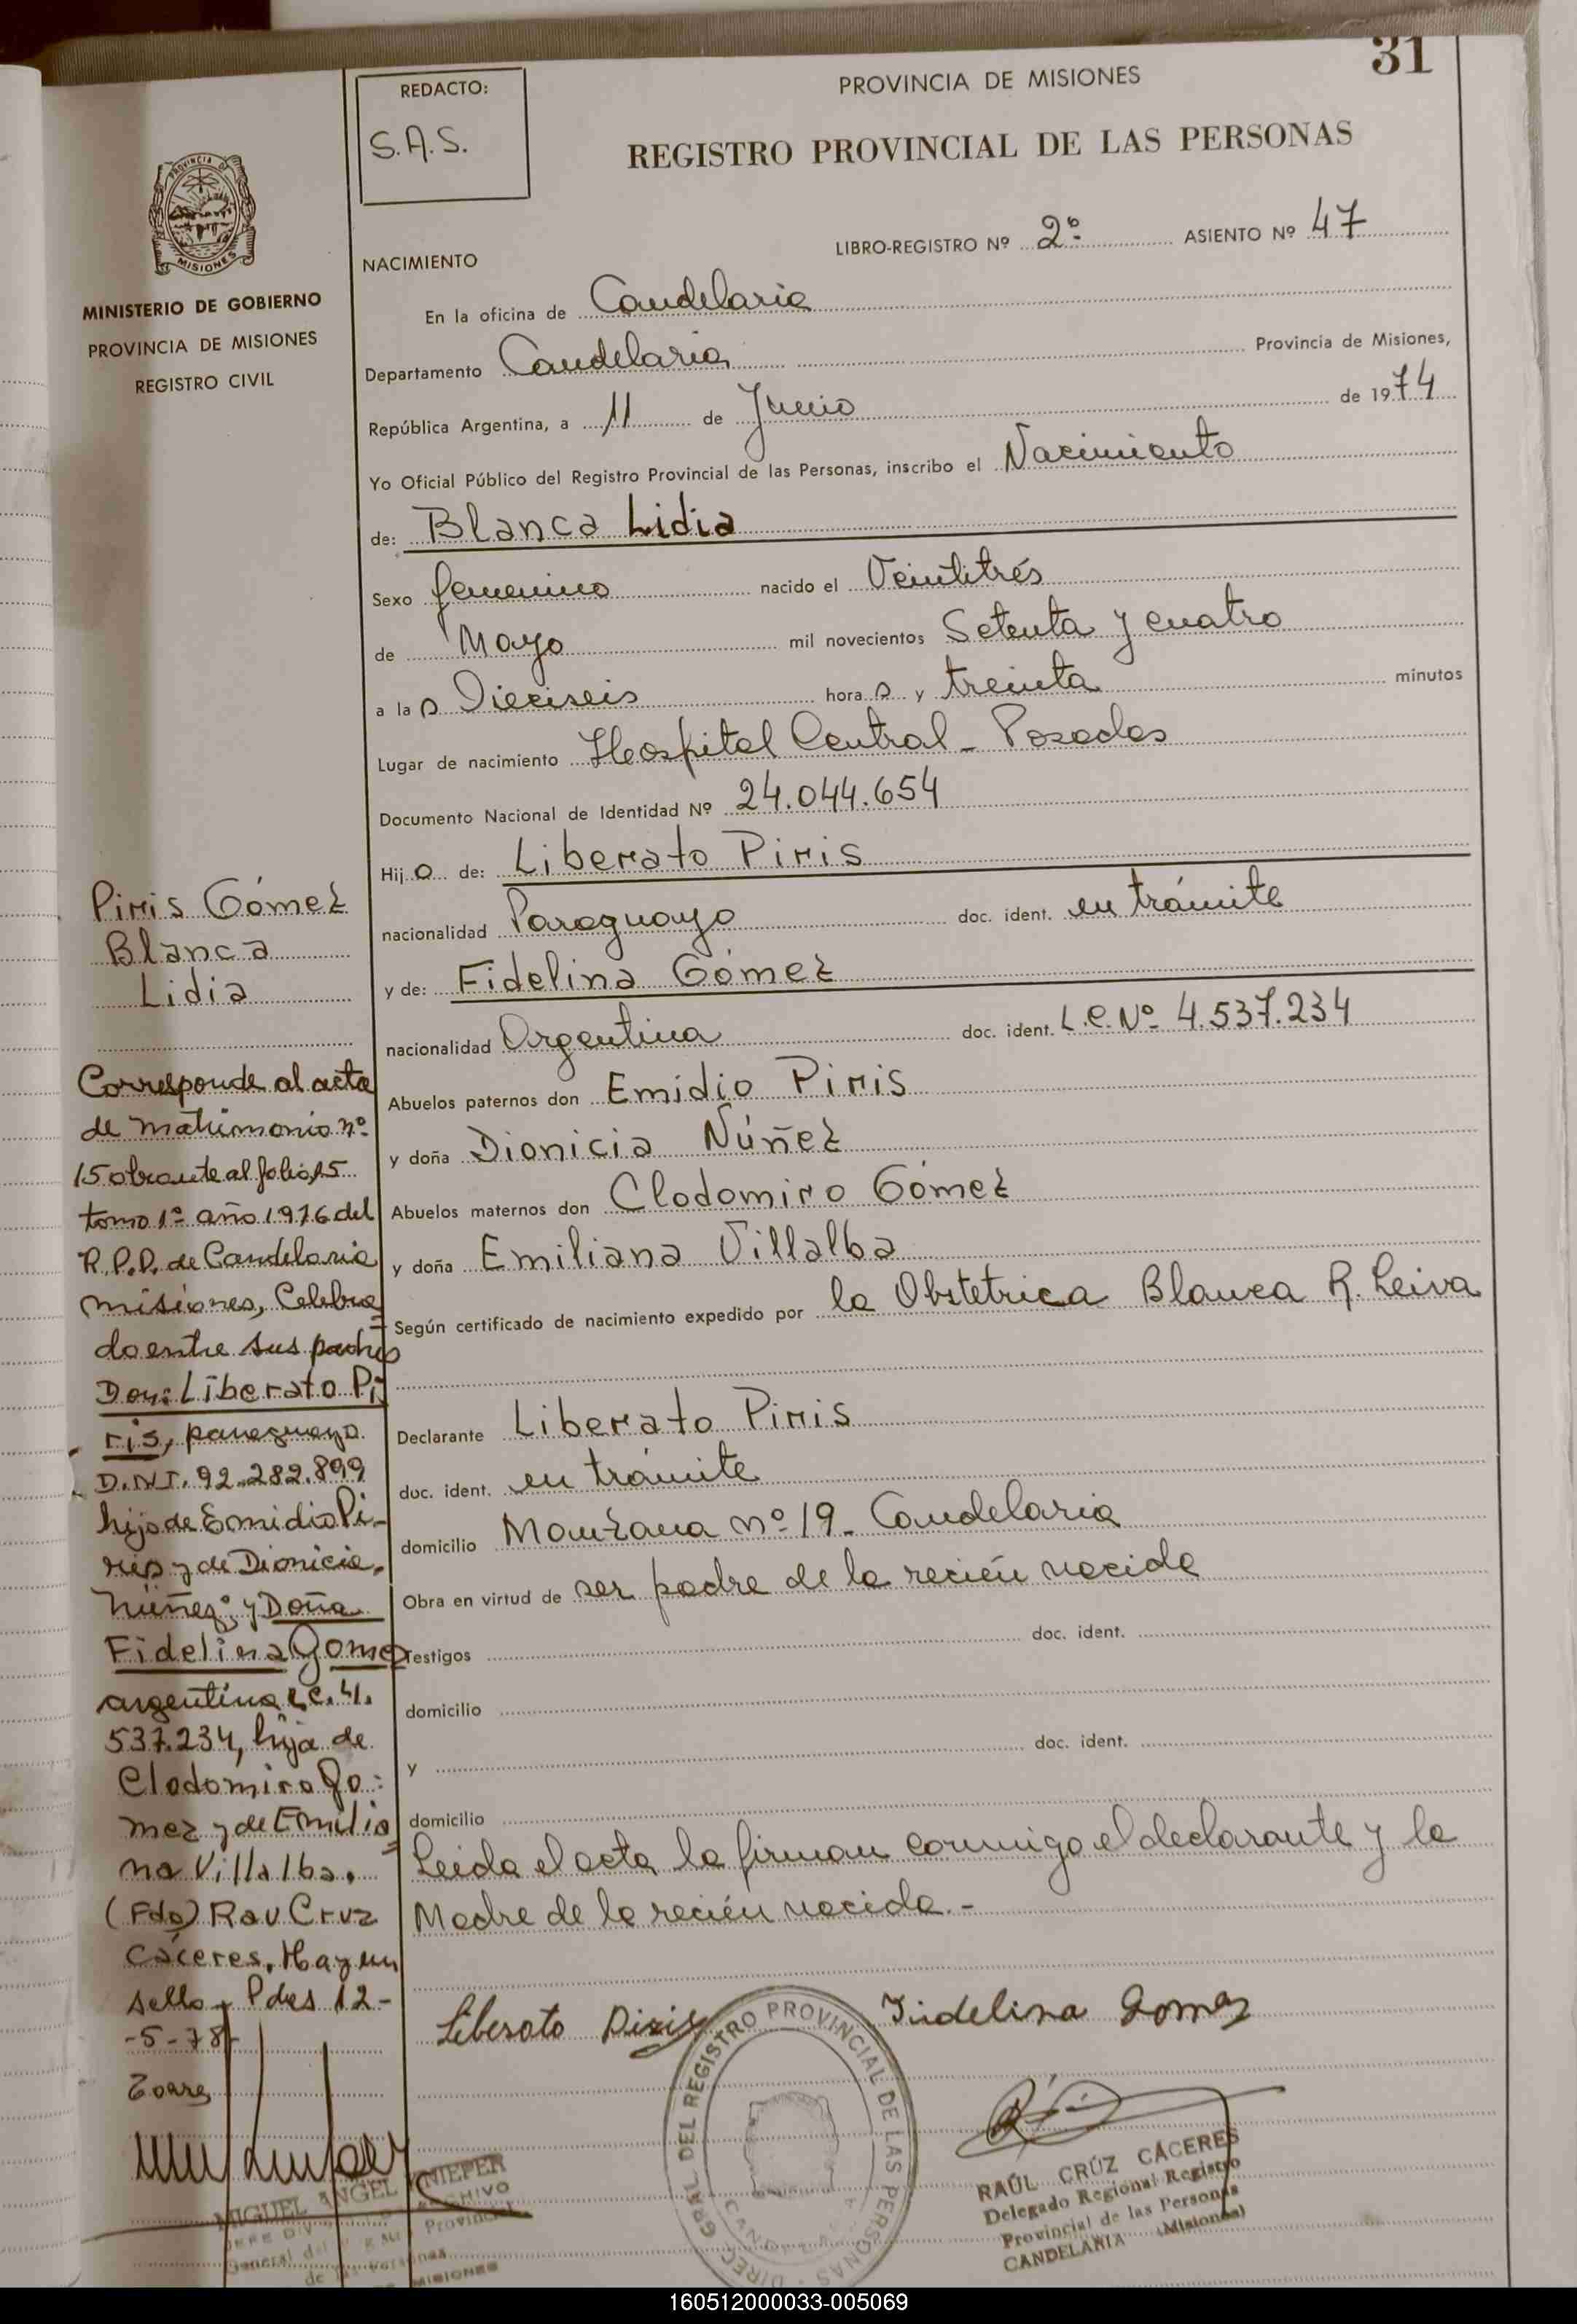 31
REDACTO:
S.A.S.
PROVINCIA DE MISIONES
REGISTRO PROVINCIAL DE LAS PERSONAS
PROVINCIA DE
MISIONES
MINISTERIO DE GOBIERNO
PROVINCIA DE MISIONES
REGISTRO CIVIL
LIBRO-REGISTRO Nº 2º ASIENTO Nº 47
NACIMIENTO
En la oficina de Candelaria
Departamento Candelaria Provincia de Misiones,
República Argentina, a 11 de Junio de 1974
Yo Oficial Público del Registro Provincial de las Personas, inscribo el Nacimiento
de: Blanca Lidia
Sexo femenino nacido el Veintitrés
de Mayo mil novecientos Setenta y cuatro
a las Dieciseis horas y treinta minutos
Lugar de nacimiento Hospital Central - Posadas
Documento Nacional de Identidad Nº 24.044.654
Hija de: Liberato Piris
nacionalidad Paraguayo doc. ident. en trámite
y de: Fidelina Gómez
nacionalidad Argentina doc. ident. L.C. Nº 4.537.234
Abuelos paternos don Emidio Piris
y doña Dionicia Núñez
Abuelos maternos don Clodomiro Gómez
y doña Emiliana Villalba
Según certificado de nacimiento expedido por la Obstetrica Blanca R. Leiva
Declarante Liberato Piris
doc. ident. en trámite
domicilio Manzana nº 19 - Candelaria
Obra en virtud de ser padre de la recién nacida
Testigos doc. ident.
domicilio
y doc. ident.
domicilio
Leida el acta, la firman conmigo el declarante y la
Madre de la recién nacida.-
Liberato Piris Fidelina Gomez
DIREC. GRAL. DEL REGISTRO PROVINCIAL DE LAS PERSONAS
RAÚL CRÚZ CÁCERES
Delegado Regional Registro
Provincial de las Personas
CANDELARIA (Misiones)
Piris Gómez
Blanca
Lidia
Corresponde al acta
de matrimonio nº
15 obrante al folio 15
tomo 1º año 1976 del
R.P.P. de Candelaria
misiones, Celebra=
do entre sus padres
Don: Liberato Pi
ris, paraguayo
D.N.I. 92.282.899
hijo de Emidio Pi-
ris y de Dionicia
Núñez; y Doña
Fidelina Gomez
argentina L.C. 4.
537.234, hija de
Clodomiro Go=
mez y de Emilia=
na Villalba.
(Fdo) Rau Cruz
Cáceres. Hay un
sello - Pdas 12-
-5-78-
MIGUEL ANGEL KNIEPER
160512000033-005069